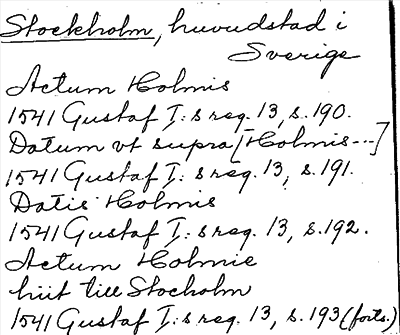 Stockholm, huvudstad i
Sverige
Actum Holmis
1541 Gustaf I:s reg. 13, s. 190.
Datum vt supra [Holmis---]
1541 Gustaf I:s reg. 13, s. 191.
Datis Holmis
1541 Gustaf I:s reg. 13, s. 192.
Actum Holmie
hiit till Stocholm
1541 Gustaf I:s reg. 13, s. 193 (forts.)